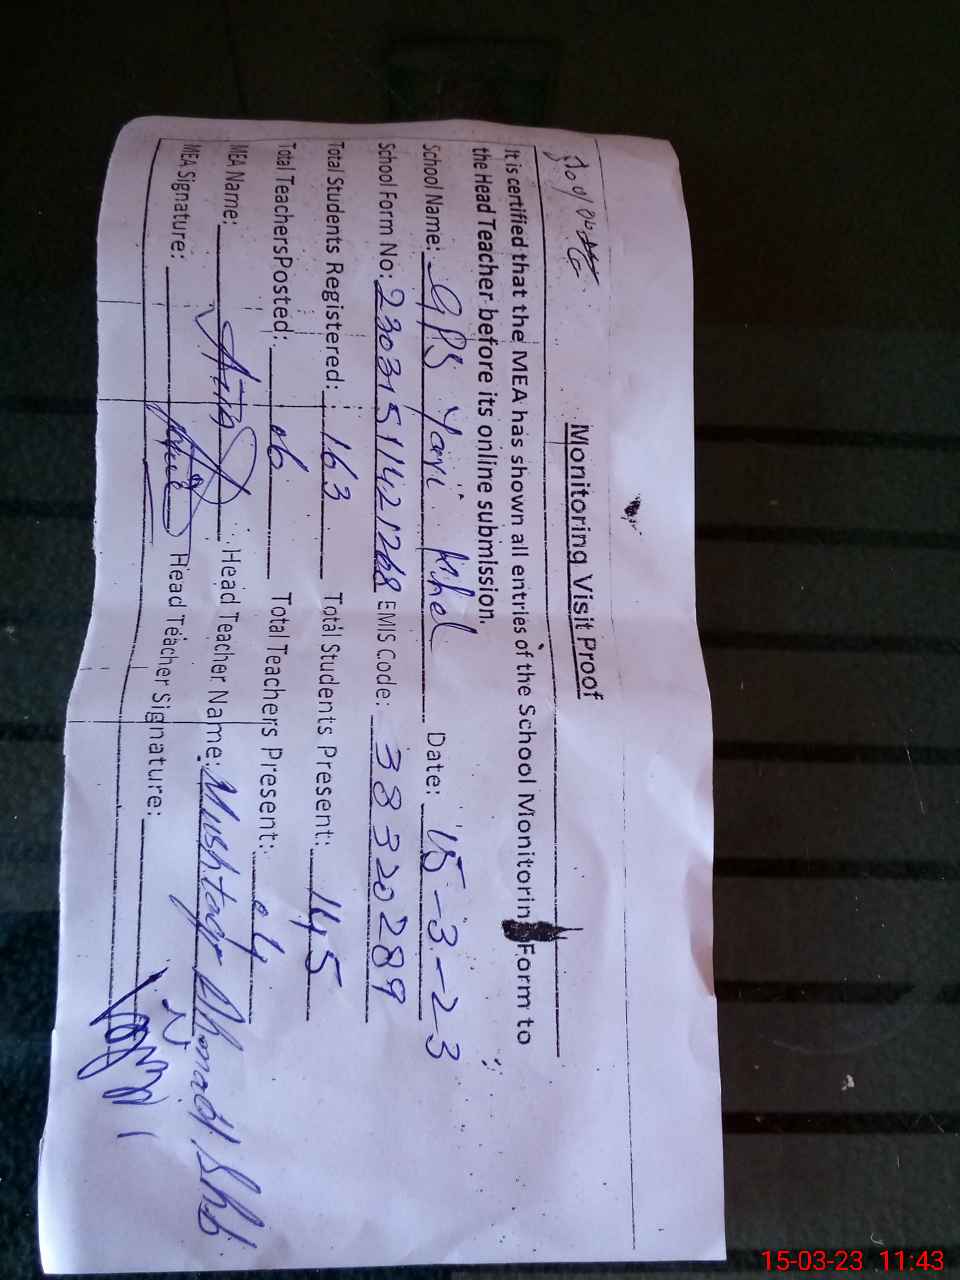 Monitoring Visit Proof
It is certified that the MEA has shown all entries of the School Monitorin Form to
the Head Teacher before its online submission.
School Name: GPS Yarii Khel Date: 15-3-23
School Form No: 23031511421268 EMIS Code: 38320289
Total Students Registered: 163 Total Students Present: 145
Total Teachers Posted: 06 Total Teachers Present: 04
MEA Name: Head Teacher Name: Mushtaq Ahmad
MEA Signature: Head Teacher Signature:
15-03-23 11:43